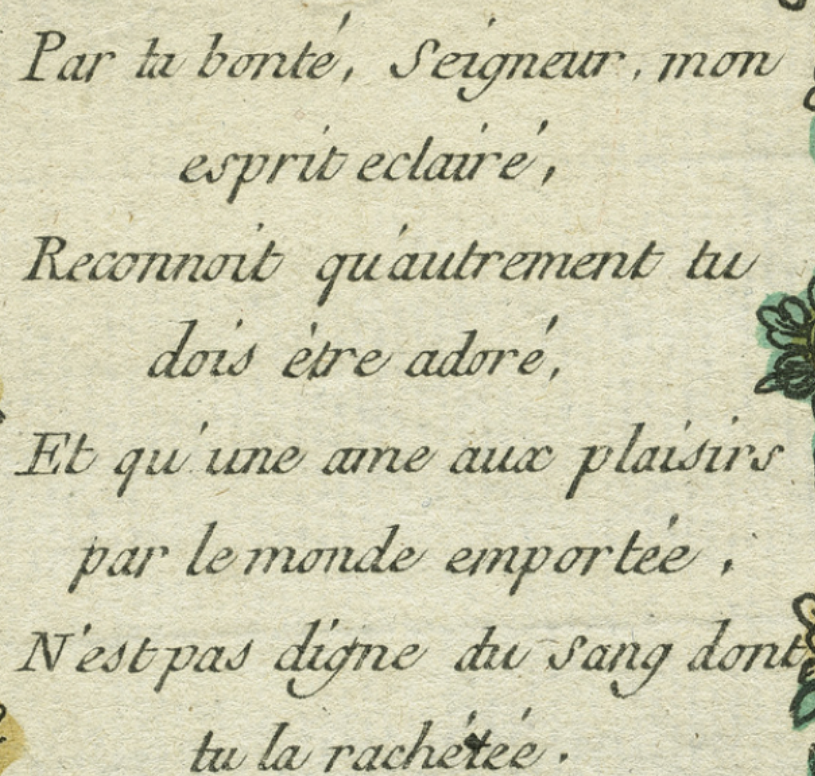 Par ta bonté, Seigneur, mon
esprit eclairé,
Reconnoit qu'autrement tu
dois être adoré,
Et qu'une ame aux plaisirs
par le monde emportée,
N'est pas digne du sang dont
tu la rachétée.